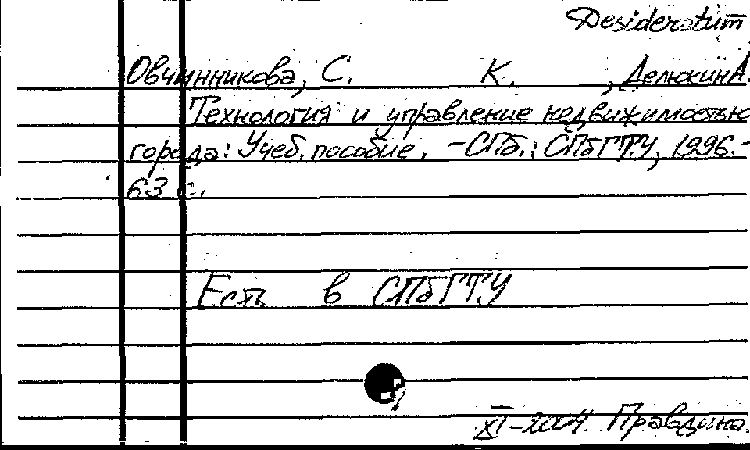 Desideratum
Овчинникова, С. К. , Делюкин А.
Технология и управление недвижимостью
города: Учеб. пособие. -СПб.: СПбГТУ, 1996.-
63 с.
Есть в СПбГТУ
XI-2004 Правдина.